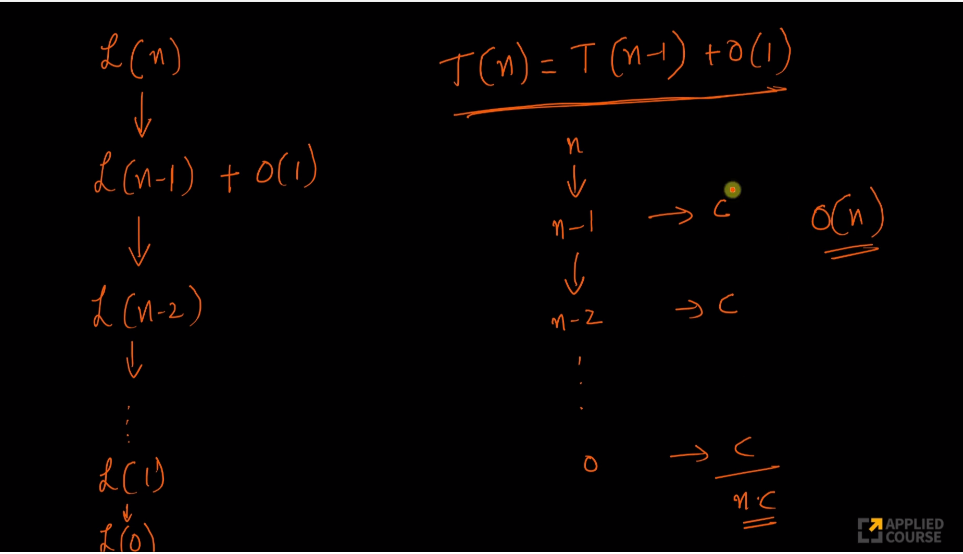 L(n)
↓
L(n-1) + O(1)
↓
L(n-2)
↓
⋮
L(1)
↓
L(0)
T(n) = T(n-1) + O(1)
n
↓
n-1 → C
↓
n-2 → C
⋮
0 → C
n·C
O(n)
APPLIED
COURSE